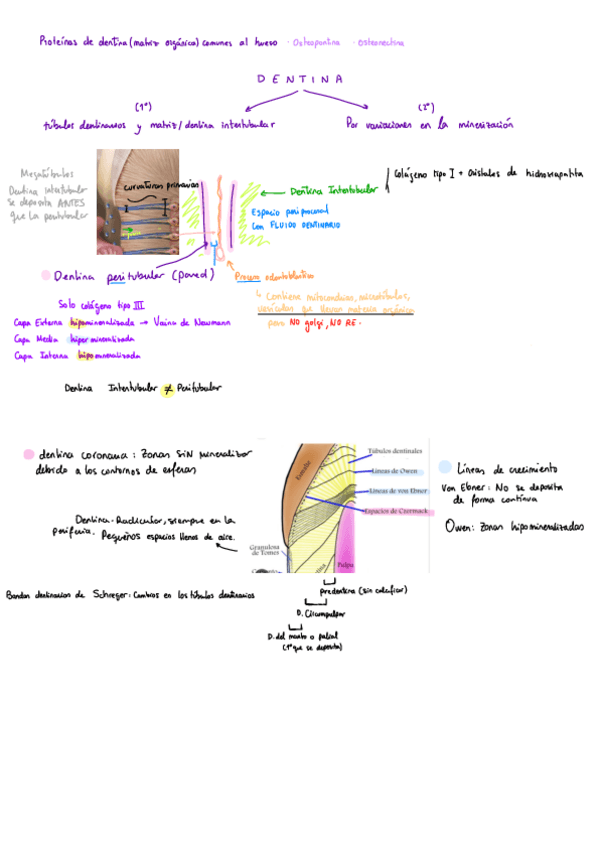 Proteínas de dentina (matriz orgánica) comunes al hueso · Osteopontina · Osteonectina
DENTINA
(1º)
túbulos dentinarios y matriz/dentina intertubular
(2º)
Por variaciones en la mineralización
Megatúbulos
Dentina intertubular
se deposita ANTES
que la peritubular
curvaturas primarias
Dentina Intertubular
Colágeno tipo I + Cristales de hidroxiapatita
Espacio periprocesal
con FLUIDO DENTINARIO
Dentina peritubular (pared)
Proceso odontoblástico
↳ Contiene mitocondrias, microtúbulos,
vesículas que llevan materia orgánica
pero NO golgi, NO RE.
Solo colágeno tipo III
Capa Externa hipomineralizada → Vaina de Newmann
Capa Media hipermineralizada
Capa Interna hipomineralizada
Dentina Intertubular ≠ Peritubular
dentina coronaria: Zonas SIN mineralizar
debido a los contornos de esferas
Dentina Radicular, siempre en la
periferia. Pequeños espacios llenos de aire.
Esmalte
Túbulos dentinales
Líneas de Owen
Líneas de von Ebner
Espacios de Czermack
Granulosa
de Tomes
Pulpa
Líneas de crecimiento
Von Ebner: No se deposita
de forma continua
Owen: Zonas hipomineralizadas
Bandas dentinarias de Schreger: Cambios en los túbulos dentinarios
predentina (sin calcificar)
D. Circumpulpar
D. del manto o palial
(1º que se deposita)